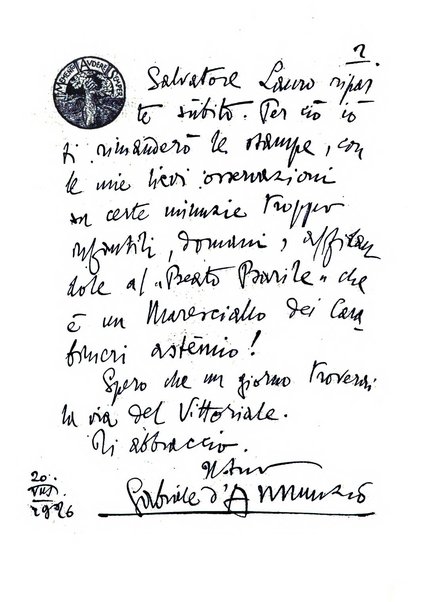 2.
MEMENTO AUDERE SEMPER
Salvatore Lauro ripar
te subito. Per ciò io
ti rimanderò le stampe, con
le mie lievi osservazioni
su certe minuzie troppo
infantili, domani, affidan
dole al "Beato Barile" che
è un Maresciallo dei Cara
binieri astèmio!
Spero che un giorno troverai
la via del Vittoriale.
Ti abbraccio.
Il tuo
Gabriele d'Annunzio
20.
VII
1926